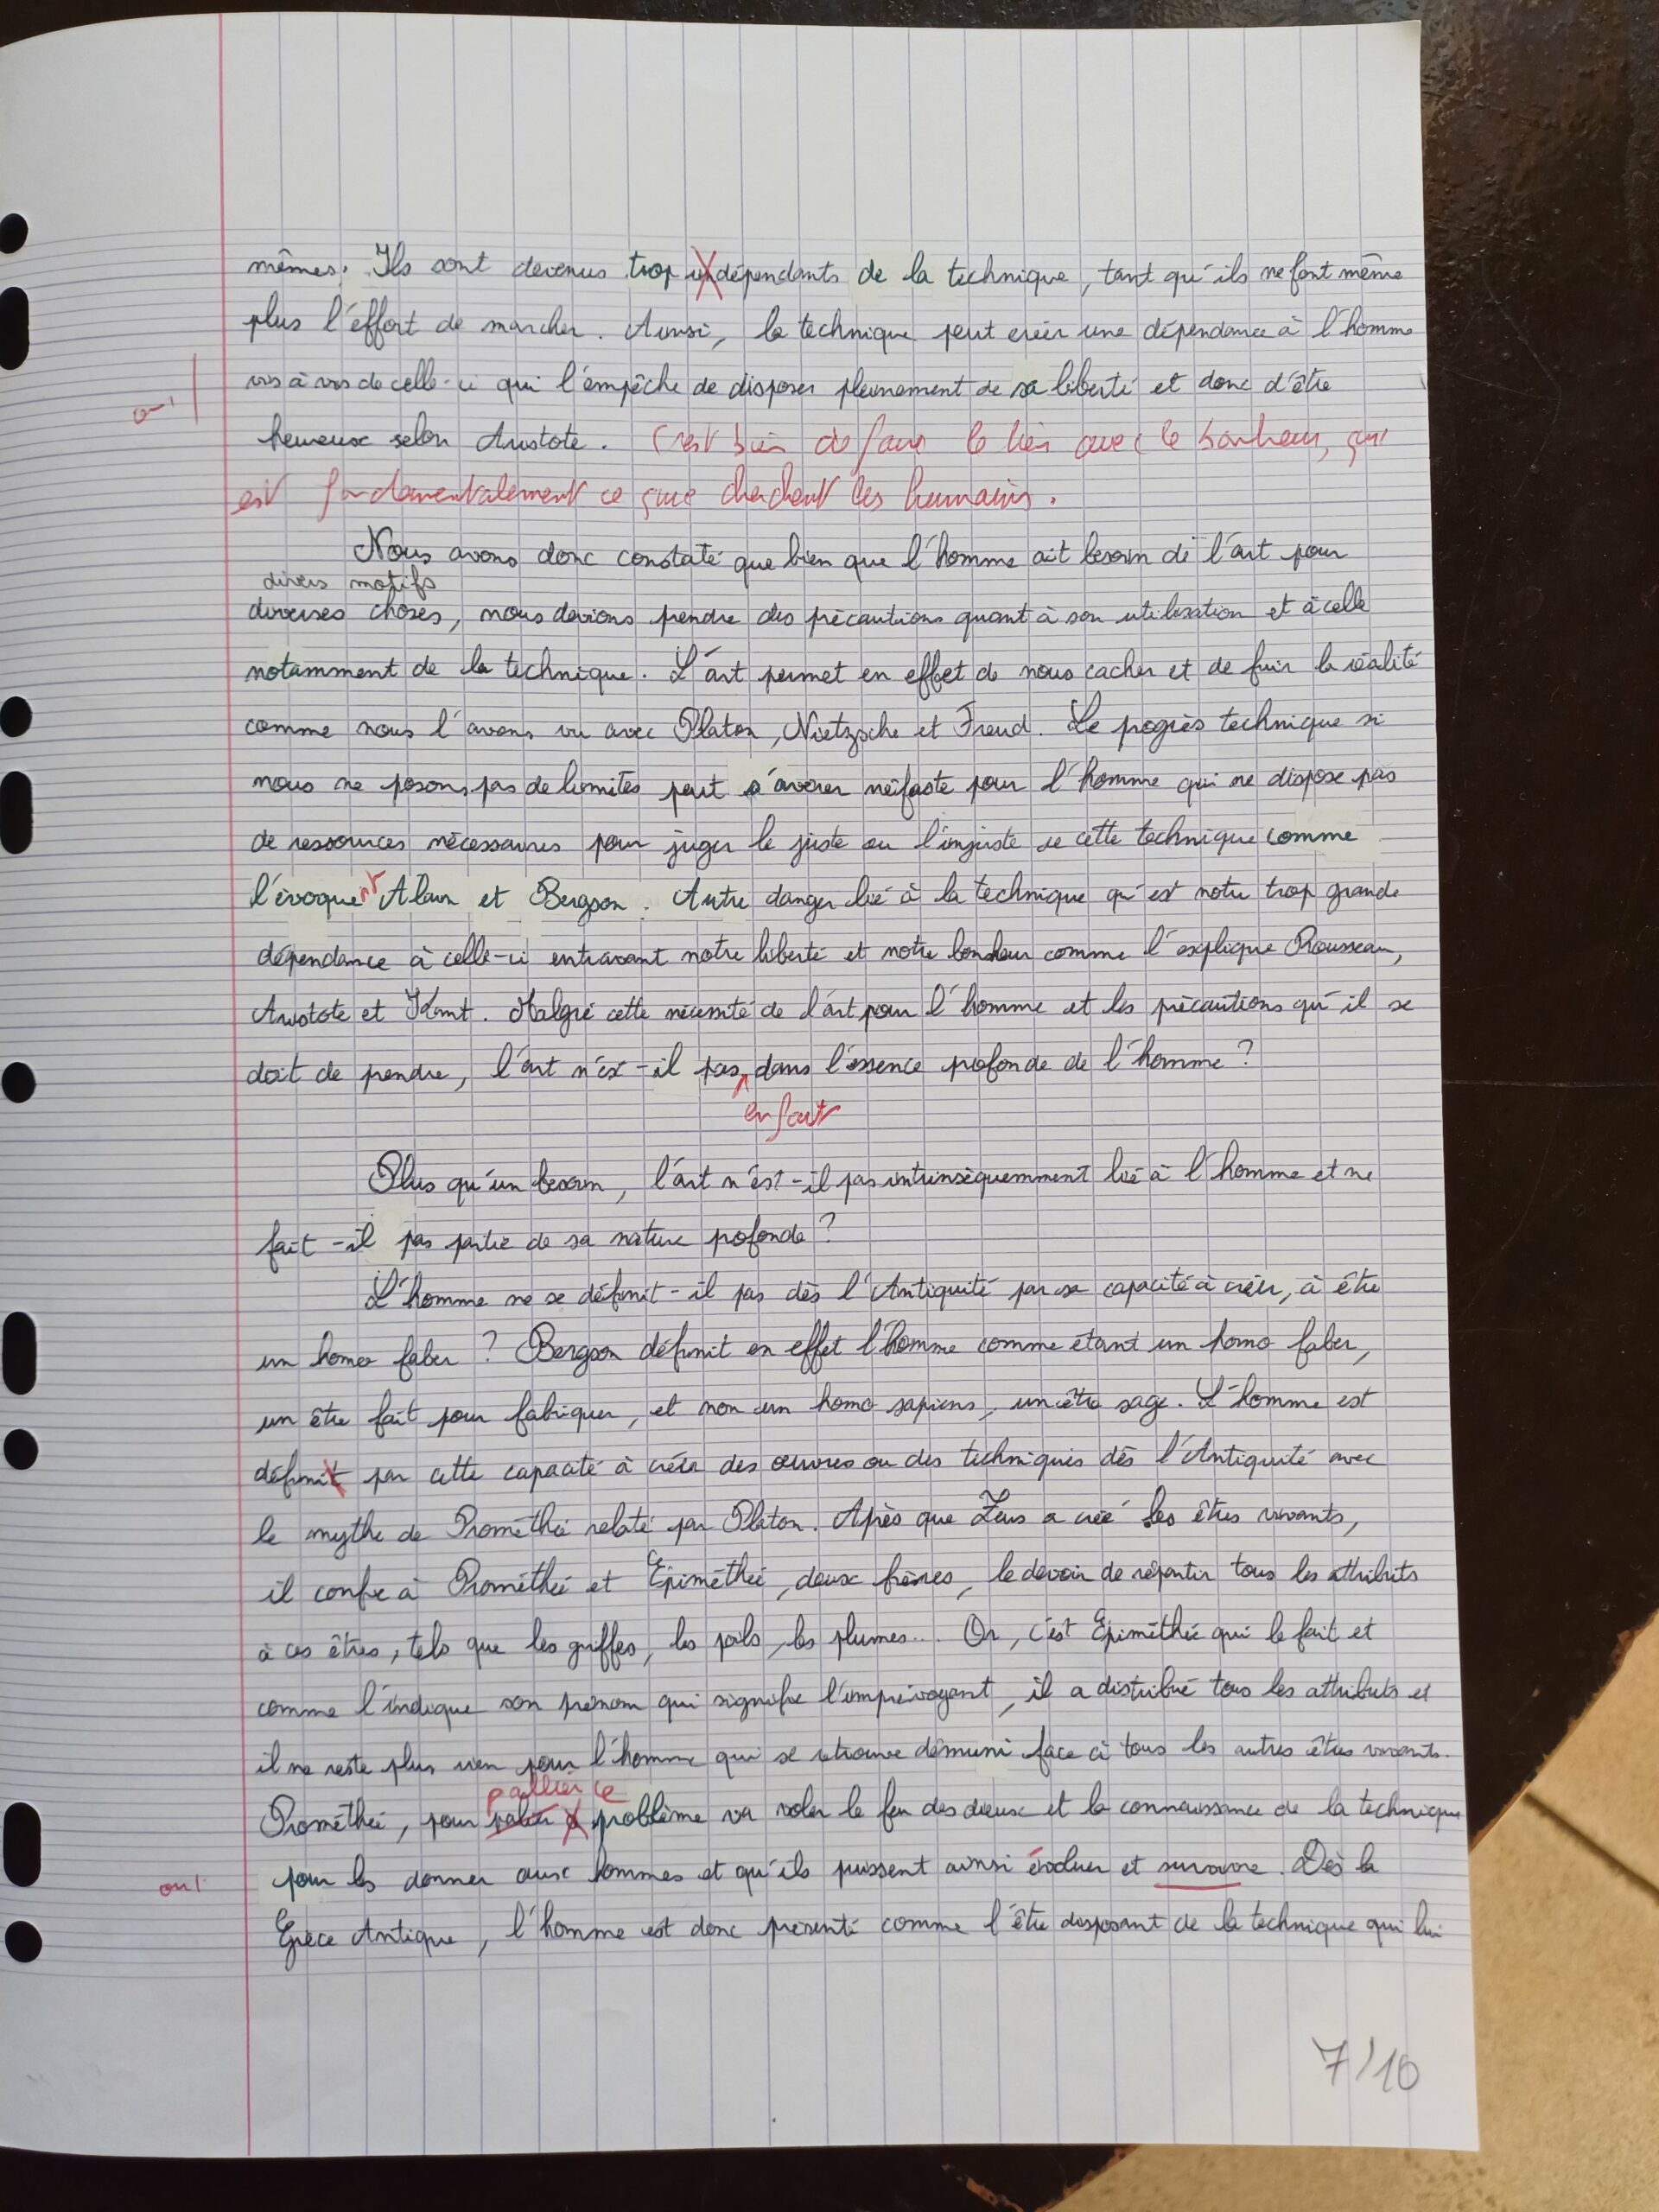 mêmes. Ils sont devenus trop indépendants de la technique, tant qu'ils ne font même
plus l'effort de marcher. Ainsi, la technique peut créer une dépendance à l'homme
vis à vis de celle-ci qui l'empêche de disposer pleinement de sa liberté et donc d'être
oui
heureux selon Aristote. C'est bien de faire le lien avec le bonheur, qui
est fondamentalement ce que cherchent les humains.
Nous avons donc constaté que bien que l'homme ait besoin de l'art pour
divers motifs
diverses choses, nous devions prendre des précautions quant à son utilisation et à celle
notamment de la technique. L'art permet en effet de nous cacher et de fuir la réalité
comme nous l'avons vu avec Platon, Nietzsche et Freud. Le progrès technique si
nous ne posons pas de limites peut s'avérer néfaste pour l'homme qui ne dispose pas
de ressources nécessaires pour juger le juste ou l'injuste de cette technique comme
l'évoquent Alain et Bergson. Autre danger lié à la technique qu'est notre trop grande
dépendance à celle-ci entravant notre liberté et notre bonheur comme l'explique Rousseau,
Aristote et Kant. Malgré cette nécessité de l'art pour l'homme et les précautions qu'il se
doit de prendre, l'art n'est-il pas dans l'essence profonde de l'homme ?
en fait
Plus qu'un besoin, l'art n'est-il pas intrinsèquemment lié à l'homme et ne
fait-il pas partie de sa nature profonde ?
L'homme ne se définit-il pas dès l'Antiquité par sa capacité à créer, à être
un homo faber ? Bergson définit en effet l'homme comme étant un homo faber,
un être fait pour fabriquer, et non un homo sapiens, un être sage. L'homme est
définit par cette capacité à créer des œuvres ou des techniques dès l'Antiquité avec
le mythe de Prométhée relaté par Platon. Après que Zeus a créé les êtres vivants,
il confie à Prométhée et Epiméthée, deux frères, le devoir de répartir tous les attributs
à ces êtres, tels que les griffes, les poils, les plumes... Or, c'est Epiméthée qui le fait et
comme l'indique son prénom qui signifie l'imprévoyant, il a distribué tous les attributs et
il ne reste plus rien pour l'homme qui se retrouve démuni face à tous les autres êtres vivants.
pallier ce
Prométhée, pour palier à problème va voler le feu des dieux et la connaissance de la technique
pour les donner aux hommes et qu'ils puissent ainsi évoluer et survivre. Dès la
oui
Grèce Antique, l'homme est donc présenté comme l'être disposant de la technique qui lui
7/10